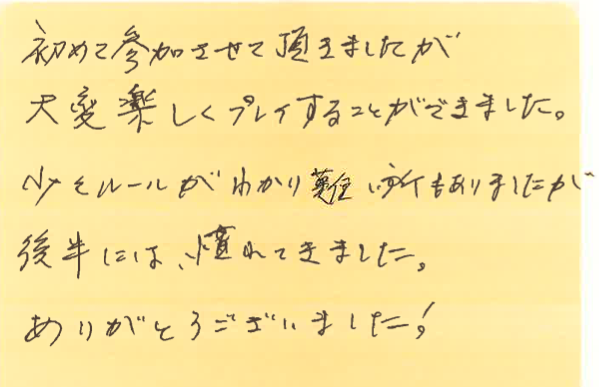 初めて参加させて頂きましたが
大変楽しくプレイすることができました。
少々ルールがわかり難い所もありましたが
後半には、慣れてきました。
ありがとうございました!